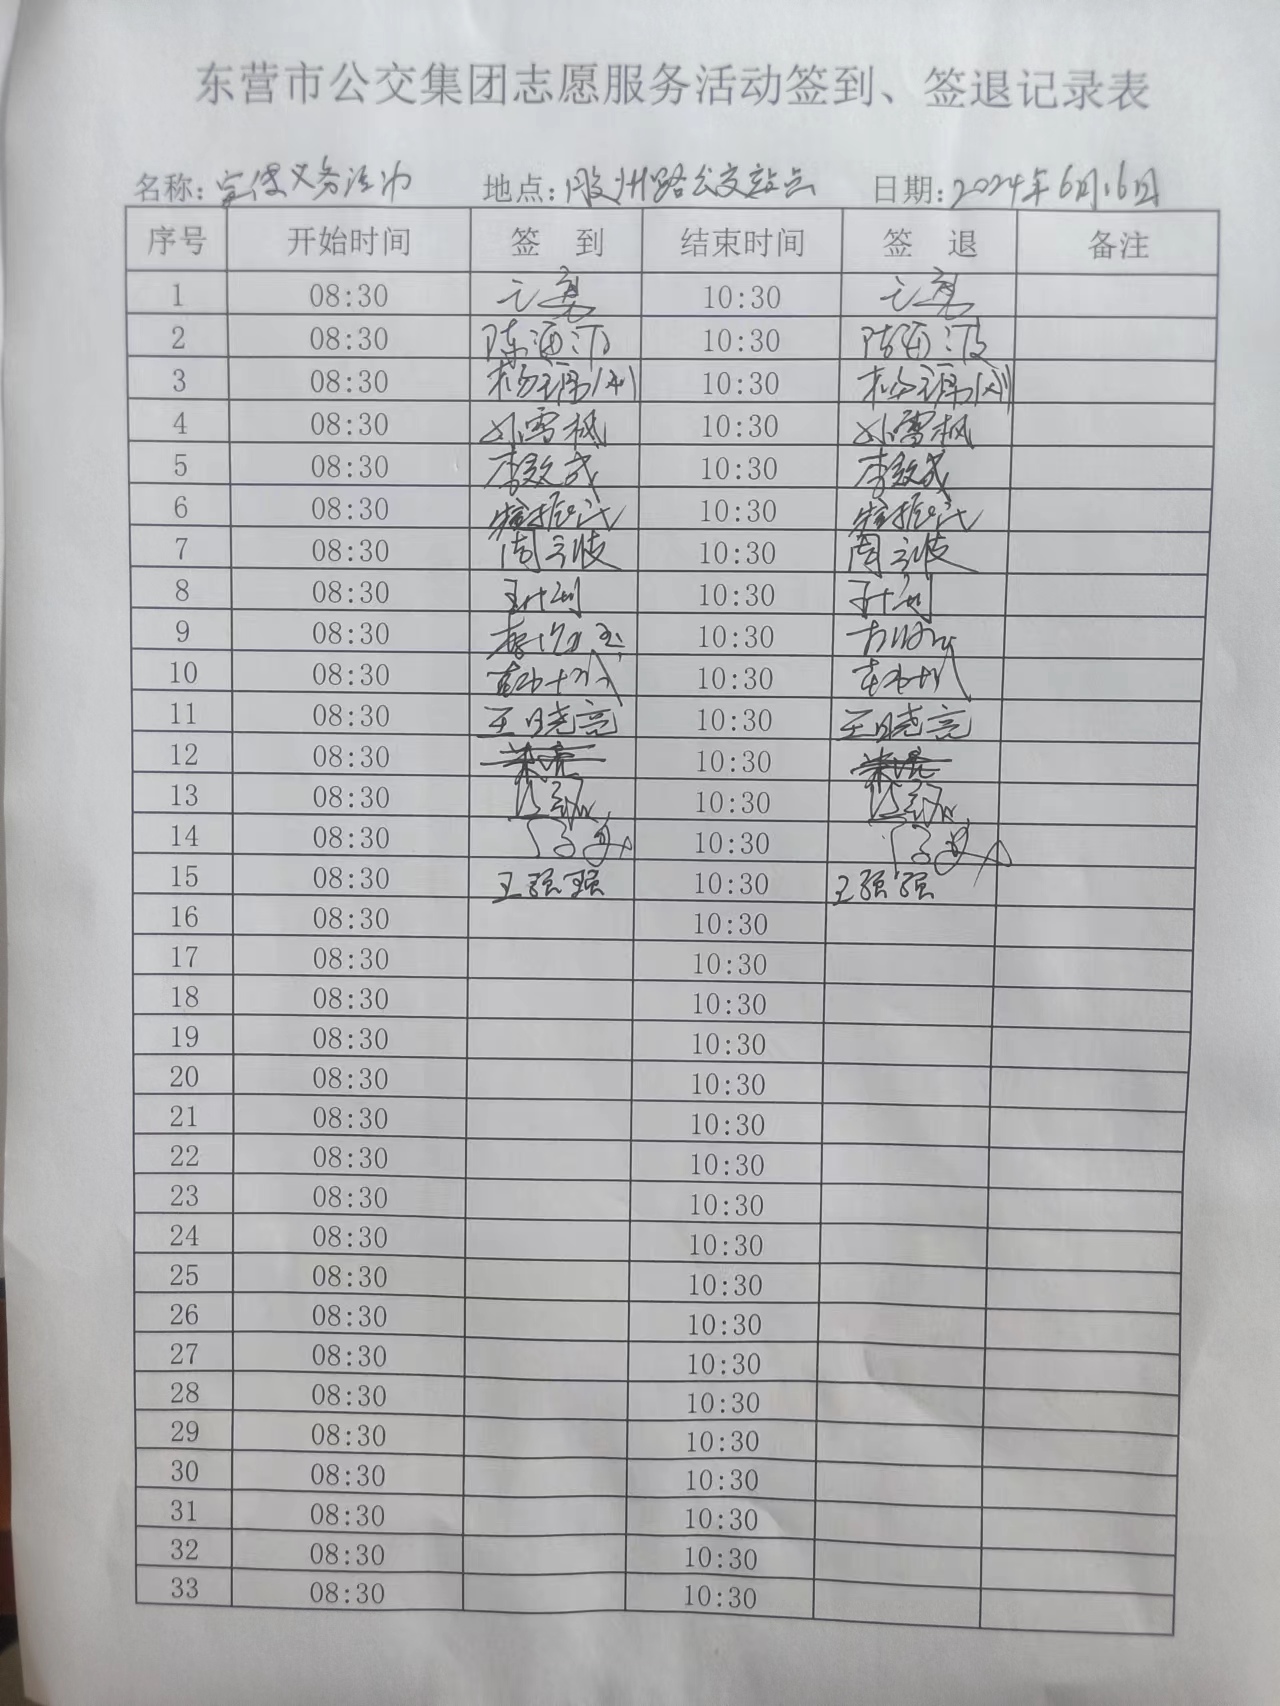 东营市公交集团志愿服务活动签到、签退记录表
名称:宣传义务活动 地点:胶州路公交站点 日期:2024年6月16日
序号 开始时间 签 到 结束时间 签 退 备注
1 08:30 10:30
2 08:30 10:30
3 08:30 10:30
4 08:30 孙雪枫 10:30 孙雪枫
5 08:30 李效成 10:30 李效成
6 08:30 10:30
7 08:30 周立波 10:30 周立波
8 08:30 10:30
9 08:30 10:30
10 08:30 10:30
11 08:30 王晓亮 10:30 王晓亮
12 08:30 10:30
13 08:30 10:30
14 08:30 10:30
15 08:30 王强强 10:30 王强强
16 08:30 10:30
17 08:30 10:30
18 08:30 10:30
19 08:30 10:30
20 08:30 10:30
21 08:30 10:30
22 08:30 10:30
23 08:30 10:30
24 08:30 10:30
25 08:30 10:30
26 08:30 10:30
27 08:30 10:30
28 08:30 10:30
29 08:30 10:30
30 08:30 10:30
31 08:30 10:30
32 08:30 10:30
33 08:30 10:30